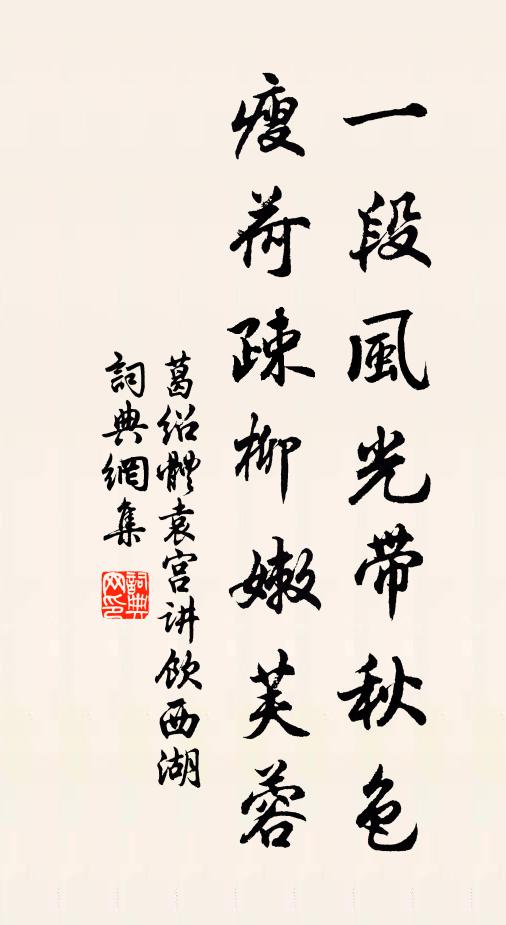 一段風光帶秋色
瘦荷疎柳嫩芙蓉
葛绍體袁宫讲飲西湖
詞典網集
詞典网印